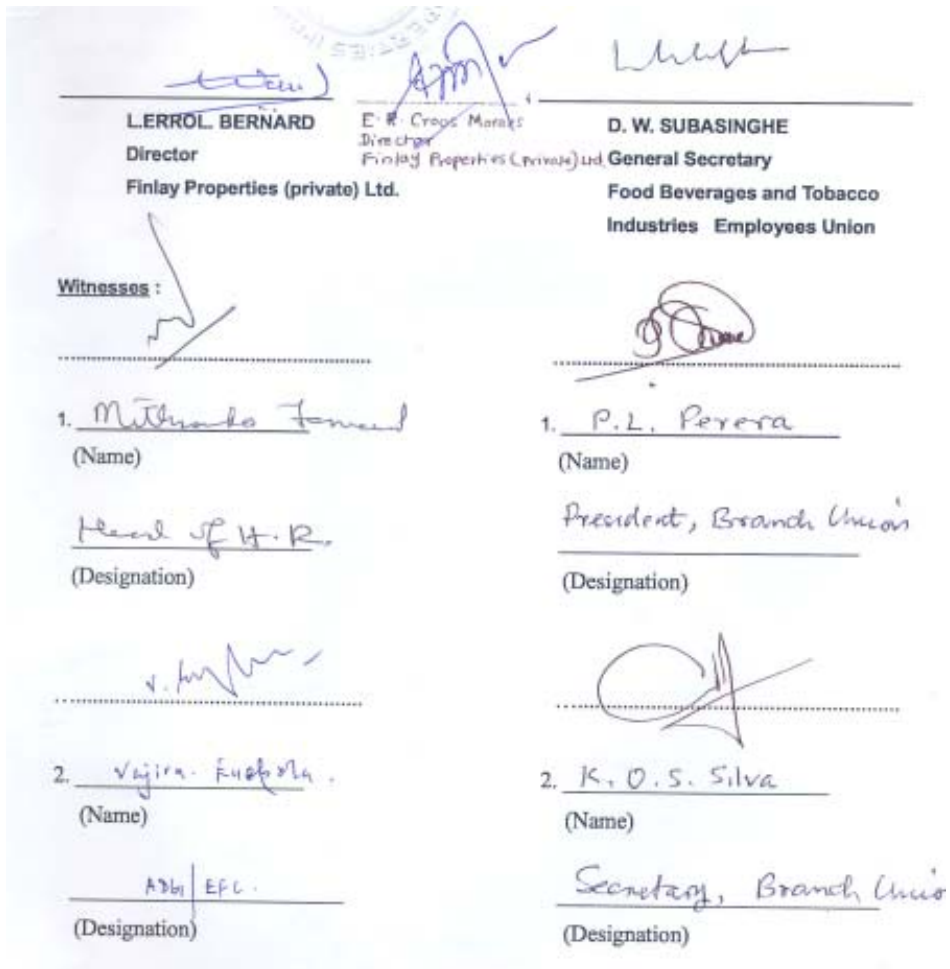 L.ERROL. BERNARD
Director
Finlay Properties (private) Ltd.
E. R. Croos Moraes
Director
Finlay Properties (private) Ltd
D. W. SUBASINGHE
General Secretary
Food Beverages and Tobacco
Industries Employees Union
Witnesses :
1.
(Name)
Head of H.R.
(Designation)
1. P.L. Perera
(Name)
President, Branch Union
(Designation)
2. Vajira
(Name)
EFC.
(Designation)
2. K. O. S. Silva
(Name)
Secretary, Branch
(Designation)